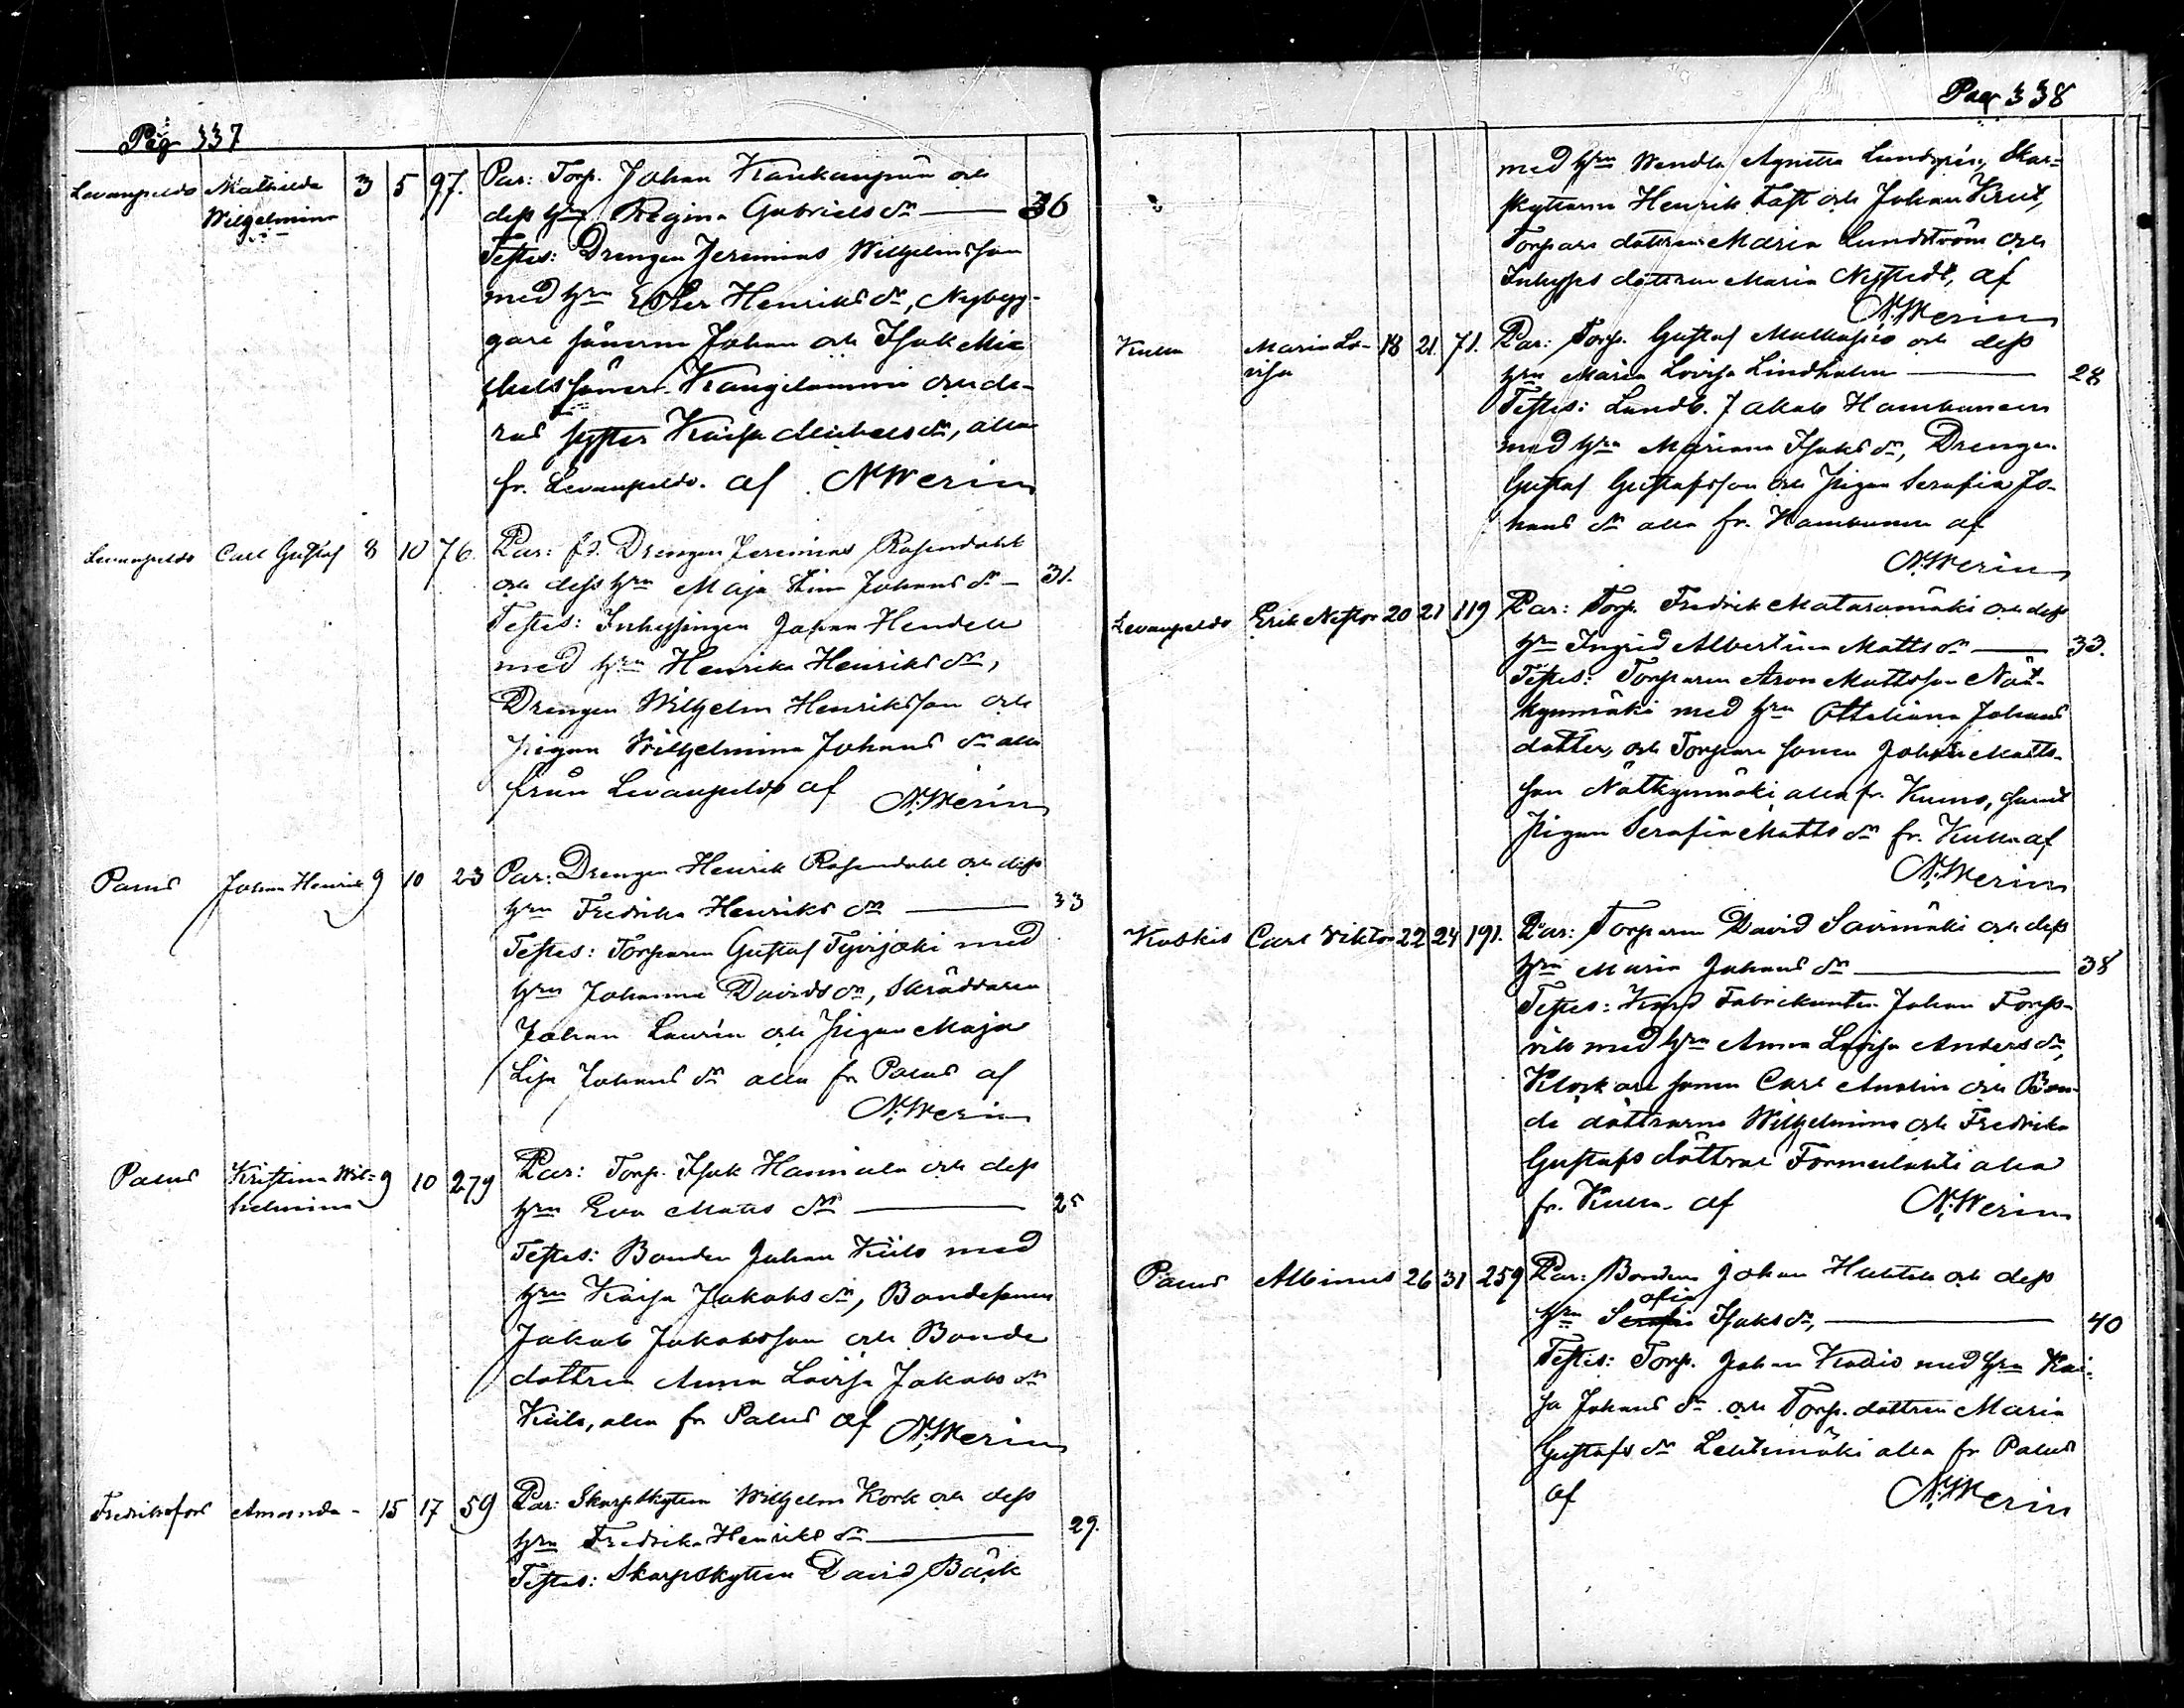 Pag 337
Levanpeldo Mathilda 3 5 97. Par: Torp. Johan Kankaanpää och
Wilhelmina dess hru Regina Gabriels dr — 36
Testes: Drengen Jeremias Wilhelmsson
med hru Ester Henriks dr, Nybyg-
gare sönerne Johan och Isak Mic
helssöner Kangilammi och de-
ras syster Kaisa Michels dr, alla
fr. Levanpeldo. af N. Merin
Levanpeldo Carl Gustaf 8 10 76. Par: fd. Drengen Jeremias Rosendahl
och dess hru Maja Stina Johans dr — 31.
Testes: Inhysingen Johan Hendell
med hru Henrika Henriks dr,
Drengen Wilhelm Henriksson och
Pigan Wilhelmina Johans dr alla
från Levanpeldo af N. Merin
Palus Johan Henrik 9 10 23 Par: Drengen Henrik Rosendahl och dess
hru Fredrika Henriks dr — 33
Testes: Torparen Gustaf Tyvijoki med
hru Johanna Davids dr, Skräddaren
Johan Laurén och Pigan Maja
Lisa Johans dr alla fr Palus af
N. Merin
Palus Kristina Wil= 9 10 279 Par: Torp. Isak Hannula och dess
helmina hru Eva Matts dr — 25
Testes: Bonden Johan Kiilo med
hru Kaisa Jakobs dr, Bondesonen
Jakob Jakobsson och Bonde
dottren Anna Lovisa Jakobs dr
Kiilo, alla fr Palus af N. Merin
Fredriksfors Amanda - 15 17 59 Par: Skarpskytten Wilhelm Kork och dess
hru Fredrika Henriks dr — 29.
Testes: Skarpskytten David Bäck
Pag 338
med hru Wendla Agnetta Lundgrén, Skar=
pskyttarne Henrik Fast och Johan Krut,
Torpare dottren Maria Lundström och
Inhyses dottren Maria Nystedt, af
N. Merin
Kullaa Maria Lo- 18 21. 71. Par: Torp. Gustaf Mulkasio och dess
visa hru Maria Lovisa Lindholm — 28
Testes: Landb. Jakob Hambunen
med hru Mariana Isaks dr, Drengen
Gustaf Gustafsson och Pigan Serafia Jo-
hans dr alla fr. Hambunen af
N. Merin
Levanpeldo Erik Nestor 20 21 119 Par: Torp. Fredrik Mataramäki och dess
hru Ingrid Albertina Matts dr — 33.
Testes: Torparen Aron Mattsson Nät-
kynmäki med hru Ottiliana Johans
dotter, och Torpare sonen Johan Matts-
son Nätkynmäki alla fr. Kumo, samt
Pigan Serafia Matts dr fr. Kullaa af
N. Merin
Koskis Carl Viktor 22 24 191. Par: Torparen David Savimäki och dess
hru Maria Johans dr — 38
Testes: Kard Fabrikanten Johan Forss-
vik med hru Anna Lovisa Anders dr,
Klockare sonen Carl Analin och Bon-
de döttrarne Wilhelmina och Fredrika
Gustafs döttrar Formulahti alla
fr. Kullaa af N. Merin
Palus Albinus 26 31 259 Par: Bonden Johan Huhtala och dess
ofia
hru Serafia Isaks dr, — 40
Testes: Torp. Johan Kallio med hru Kai-
sa Johans dr och Torp. dottren Maria
Gustafs dr Lehtimäki alla fr Palus
af N. Merin